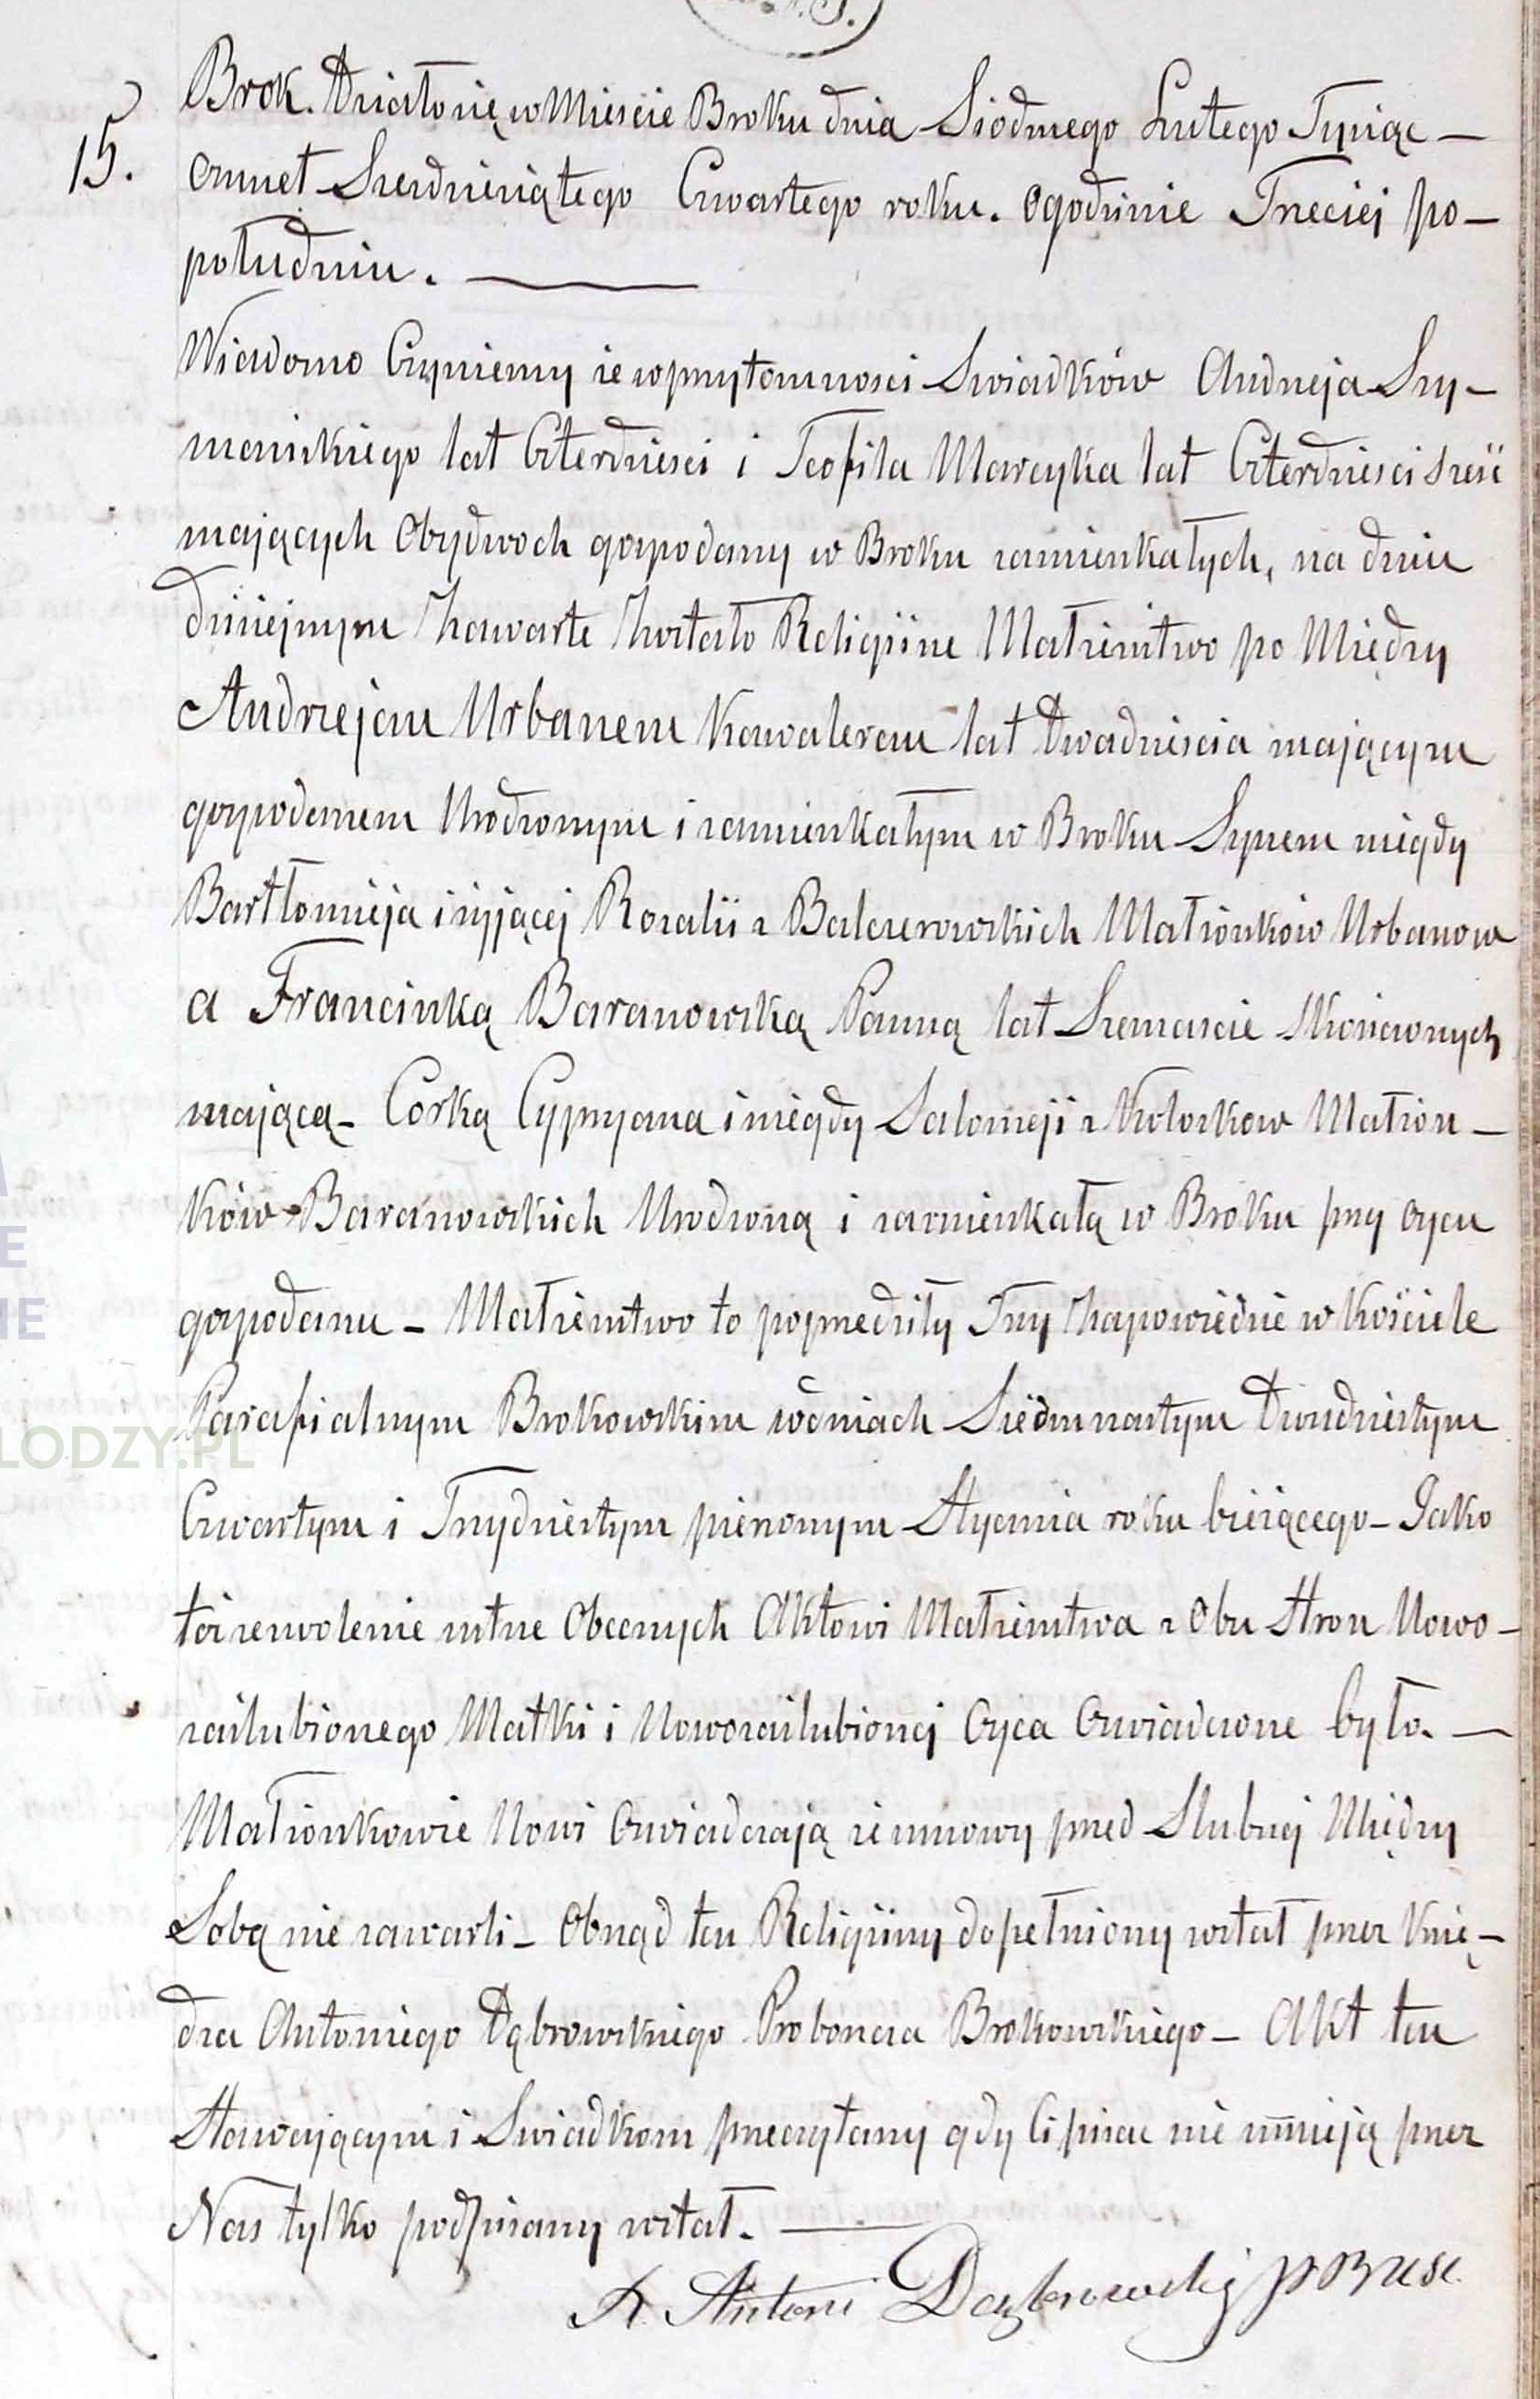 15.
Brok. Działo się w Mieście Broku dnia Siódmego Lutego Tysiąc —
ośmset Sześdziesiątego Czwartego roku. o godzinie Trzeciej po —
południu. —
Wiadomo Czyniemy że w przytomnosci Swiadków Andrzeja Szy —
mańskiego lat Czterdziesci i Teofila Marcyka lat Czterdziesci sześć
mających Obydwoch gospodarzy w Broku zamieszkałych, na dniu
dzisiejszym Zawarte Zostało Religijne Małżeństwo po Między
Andrzejem Urbanem Kawalerem lat Dwadzieścia mającym
gospodarzem Urodzonym i zamieszkałym w Broku Synem niegdy
Bartłomieja i żyjącej Rozalii z Balcerowskich Małżonków Urbanow
a Franciszką Baranowską Panną lat Szesnascie Skończonych
mającą — Corką Cypryana i niegdy Salomeji z Kołoskow Małżon —
ków Baranowskich Urodzoną i zamieszkałą w Broku przy ojcu
gospodarzu — Małżeństwo to poprzedziły Trzy Zapowiedzie w kościele
Parafialnym Brokowskim w dniach Siedmnastym Dwudziestym
Czwartym i Trzydziestym pierwszym Stycznia roku bieżącego — Jako
też zezwolenie ustne Obecnych Aktowi Małżeństwa z Obu Stron Nowo —
zaślubionego Matki i Nowozaślubionej Ojca Oswiadczone było. —
Małżonkowie Nowi Oswiadczają iż umowy przed Slubnej Między
Sobą nie zawarli — Obrząd ten Religijny dopełniony został przez Xię —
dza Antoniego Dąbrowskiego Proboszcza Brokowskiego — Akt ten
Stawającym i Swiadkom przeczytany gdy Ci pisac nie umieją przez
Nas tylko podpisany został. —
X. Antoni Dąbrowski
LODZY.PL